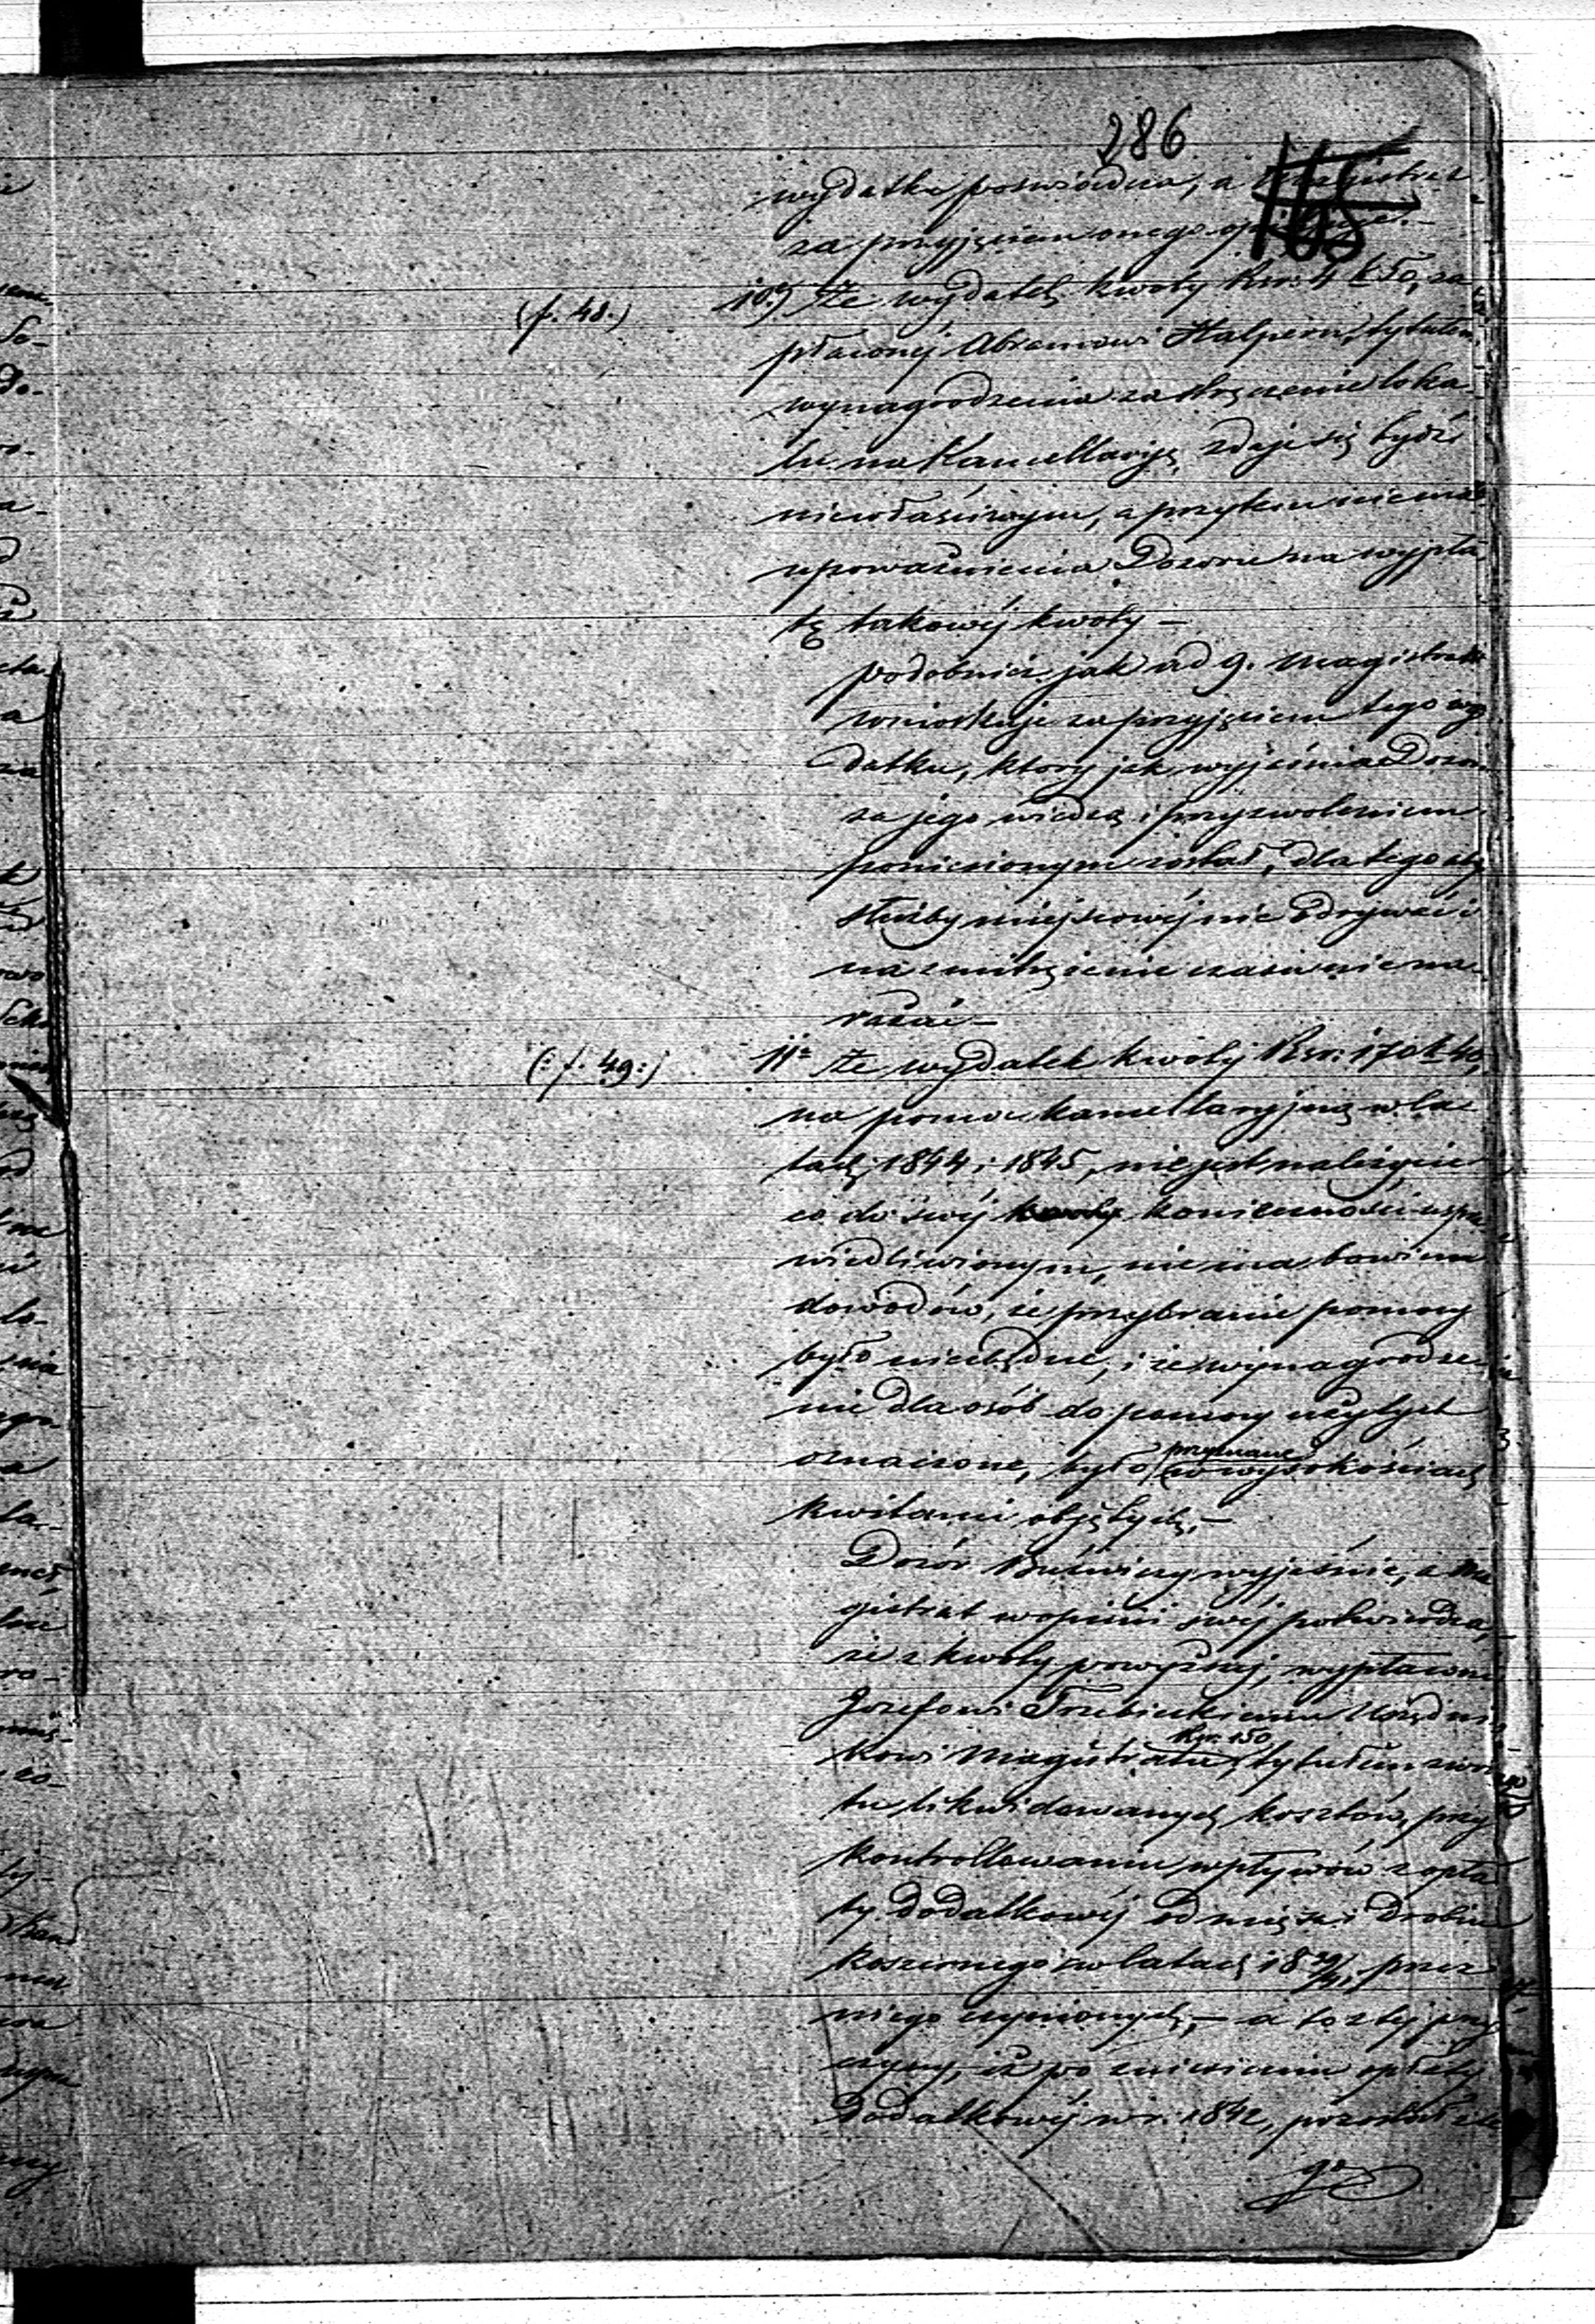 286
165
wydatku poświadcza, a Magistrat
za przyjęciem onego
(f. 48.) 10.) Że wydatek kwoty Rsr. 4 k 50, za
płaconej Abramowi Halpern, tytułem
wynagrodzenia za stręczenie loka
lu na Kancellaryę, zdaje się bydź
niewłaściwym, a przytem niema
upoważnienia Dozoru na wypła
tę takowéj kwoty –
podobnież jak ad 9. Magistrat
wnioskuje za przyjęciem tego wy
datku, który jak wyjaśnia Dozór
za jego wiedzą i przyzwoleniem
poniesionym został, dla tego aby
służby miejscowéj nie odrywać i
na zmitrężenie czasu nie na
rażać –
(: f. 49 :) 11. Że wydatek kwoty Rsr: 170 k 40,
na pomoc kancellaryjną w la
tach 1844 i 1845, nie jest należycie
co do swéj konieczności uspra
wiedliwionym, nie ma bowiem
dowodów, że przybranie pomocy
było niezbędne, i że wynagrodze
nie dla osób do pomocy użytych
oznaczone, było przyznane w wysokościach
kwitami objętych. –
Dozór Bużniczy wyjaśnia, a Ma
gistrat w opinii swéj potwierdza,
że z kwoty powyższéj, wypłacono
Józefowi Trzebickiemu Urzędni
kowi Magistratu Rsr. 150 tytułem zwro
tu likwidowanych kosztów, przy
kontrollowaniu wpływów z opła
ty dodatkowéj od mięsa i drobiu
koszernego w latach 1839/41 przez
niego czynionych, – a to z téj przy
czyny, iż po zniesieniu opłaty
Dodatkowéj w r. 1842, pozostał